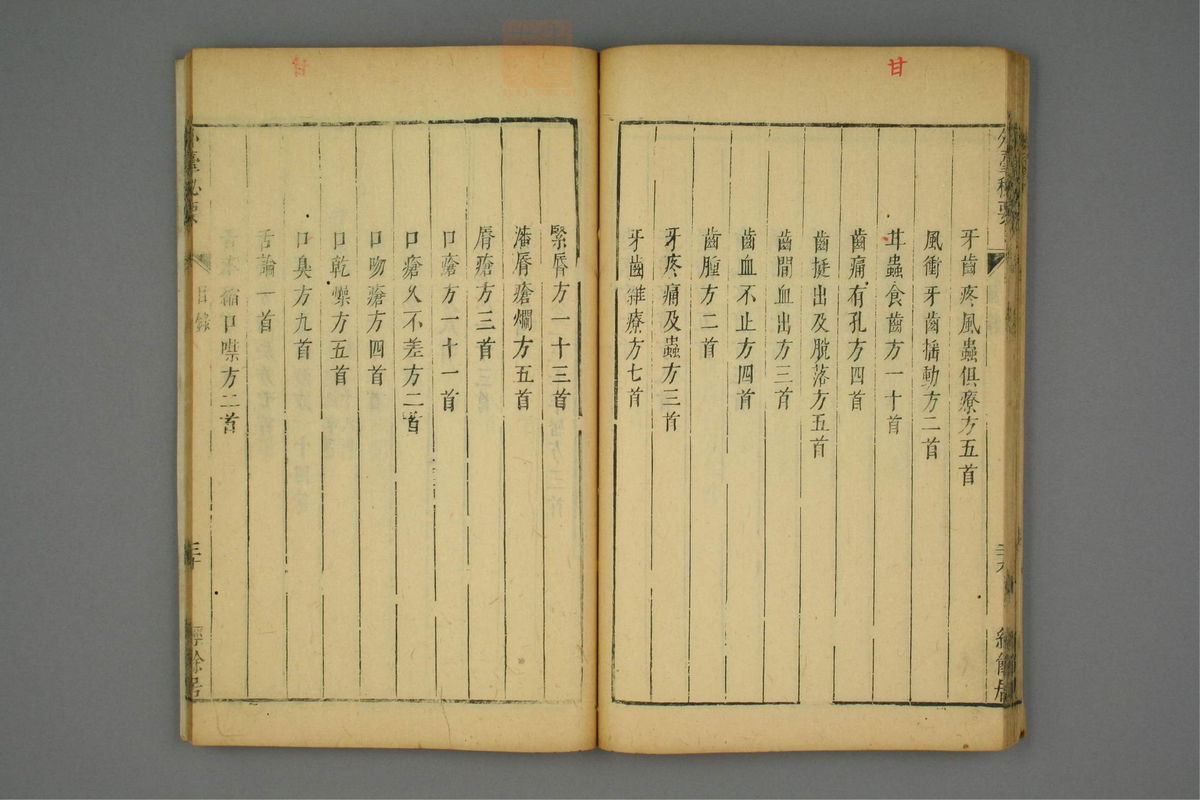 甘
外臺秘要
經餘居
牙齒疼風蟲俱療方五首
風衝牙齒搖動方二首
牙蟲食齒方一十首
齒痛有孔方四首
齒挺出及脫落方五首
齒間血出方三首
齒血不止方四首
齒腫方二首
牙疼痛及蟲方三首
牙齒雜療方七首
甘
緊脣方一十三首
瀋脣瘡爛方五首
脣瘡方三首
口瘡方一十一首
口瘡久不差方二首
口吻瘡方四首
口乾燥方五首
口臭方九首
舌論一首
口噤方二首
外臺秘要
目錄
經餘居